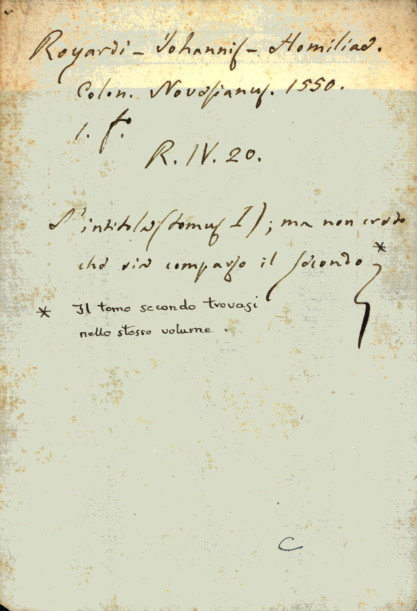 Royardi - Iohannis - Homiliae.
Colon. Novesianus. 1550.
1. f.
R. IV. 20.
S'intitola (tomus I); ma non credo
che sia comparso il secondo *
* Il tomo secondo trovasi
nello stesso volume.
C